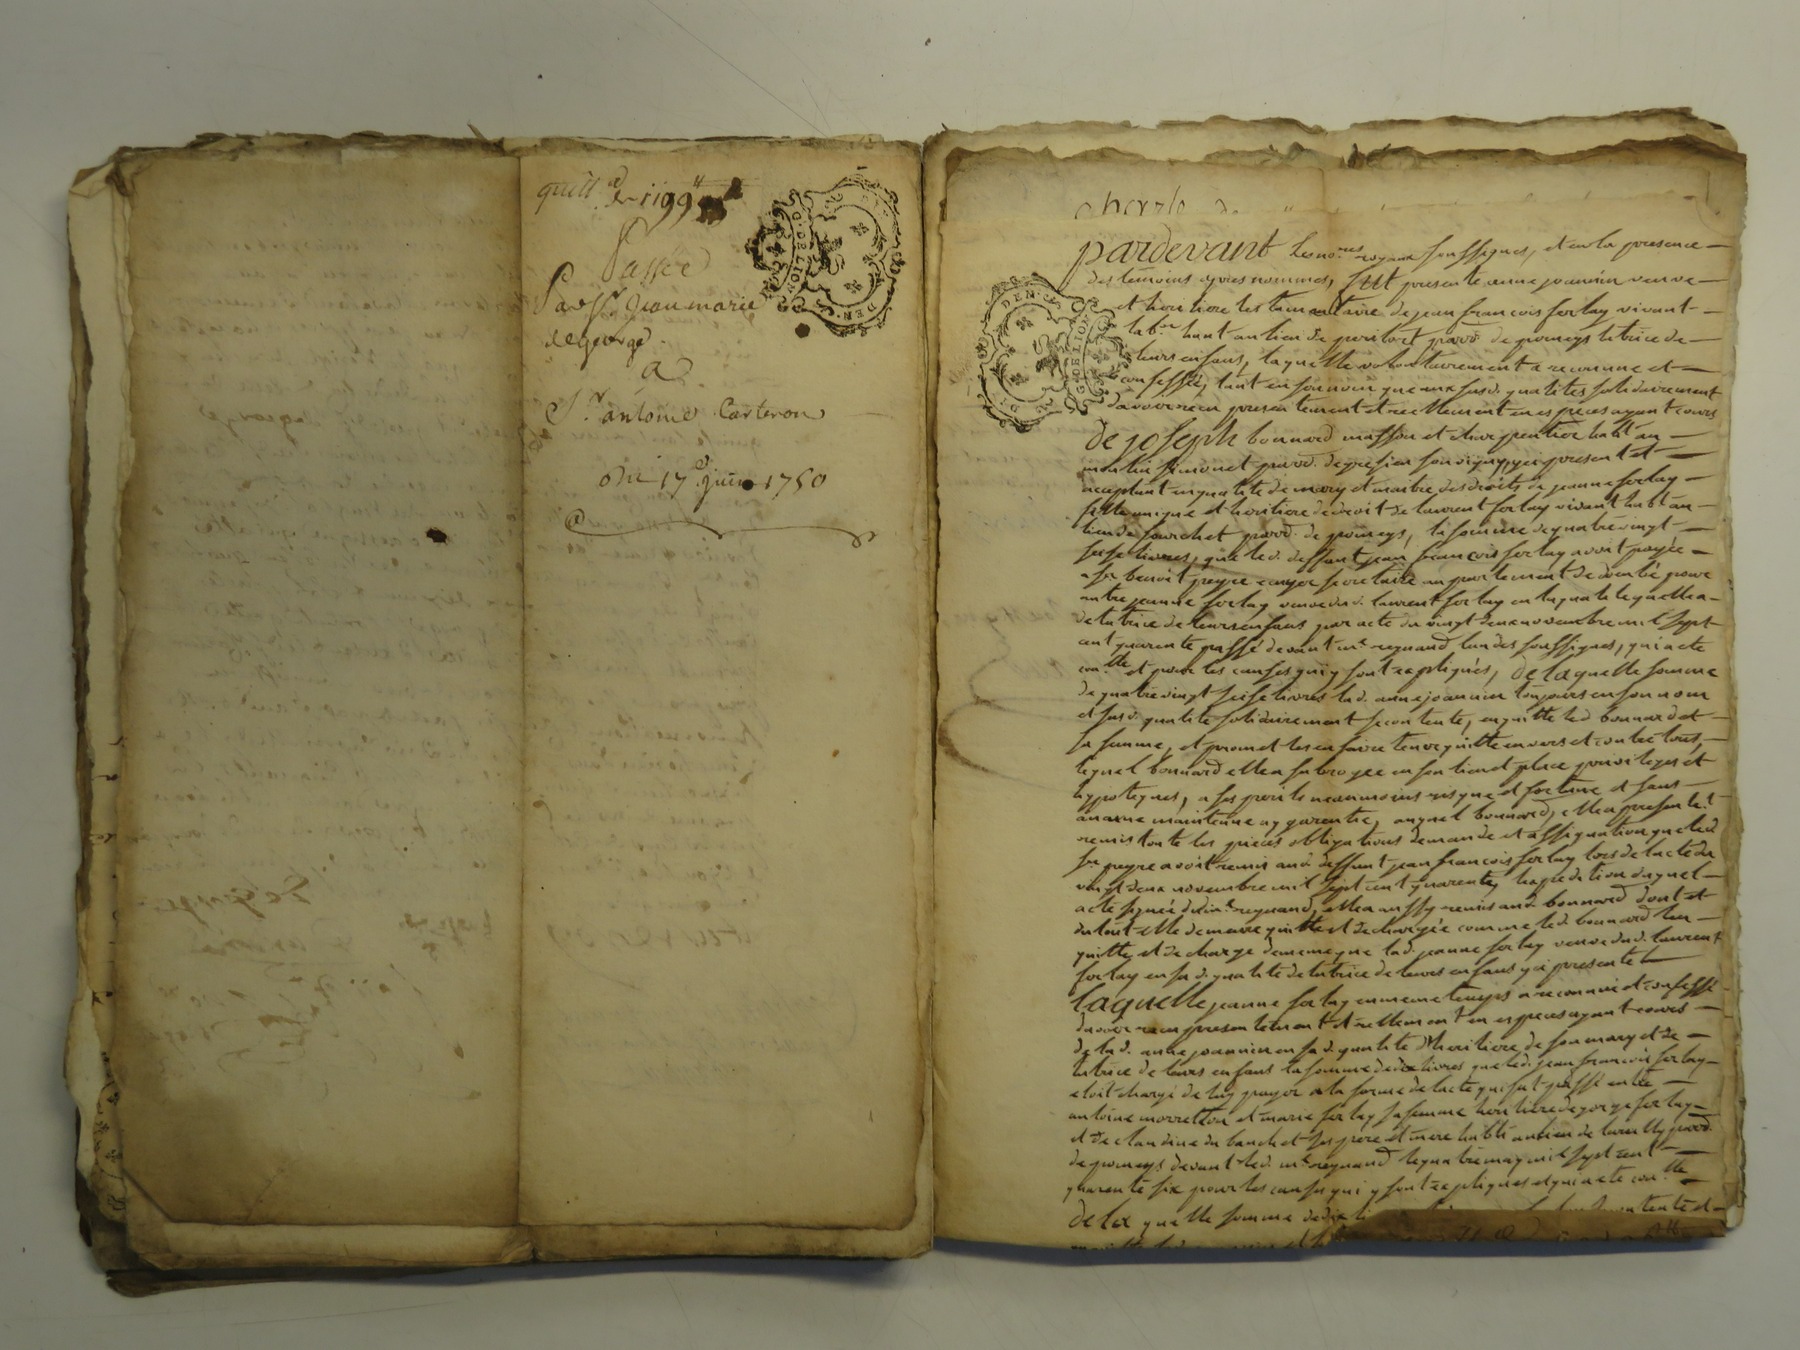 quitt.ce de 1199 ll
Passée
Par Sr. Jean marie
degeorge
a
Sr. antoine Carteron
Du 17e. juin 1750
G. DE LION
DEN.
pardevant les no.res royaux soussignes, et en la presence
des temoins apres nommes, fut presente anne joannin veuve
et heritiere testamantaire de jean francois ferlay vivant
lab.r habt au lieu de parr. de pomeys tutrice de
leurs enfans, laquelle volontairement a reconnu et
confessé, tant en son nom que aux susd. qualites solidairement
davoir receu presentement et reellement en especes ayant cours
de joseph bonnard masson et charpentier habt au
moulin simonet parr. de qui present et
acceptant en qualité de mary et maitre des droits de jeanne ferlay
fille unique et heritiere de droit de laurent ferlay vivant habt au
lieu de fourchet parr. de pomeys, la somme de quatre vingt
seise livres, que led. deffunt jean francois ferlay avoit payée
a Sr benoit peyre secretaire au parlement de dombe pour
autre jeanne ferlay veuve dud. laurent ferlay en la qualité quelle a
de tutrice de leurs enfans par acte du vingt deux novembre mil sept
cent quarente passé devant m.e reynaud lun des soussignes, qui acte
con.llé et pour les causes qui y sont expliqués, de laquelle somme
de quatre vingt seise livres lad. anne joannin toujours en son nom
et susd. qualité solidairement se contente, en quitte led bonnard et
sa femme, et promet les en faire tenir quitte envers et contre tous,
lequel bonnard elle a subrogée en son lieu et place privileges et
hypoteques, a ses perils neanmoins risque et fortune et sans
aucune maintenue ny garentie, auquel bonnard, elle a presentet.
remis toute les pieces obligations demande et assignation que led
Sr peyre avoit remis aud. deffunt jean francois ferlay lors de lacte du
vingt deux novembre mil sept cent quarente, lexpedition duquel
acte signée dud m.e reynaud, elle a aussy remis aud. bonnard dont et
du tout elle demeure quitte et dechargée comme led. bonnard len
quitte et decharge de meme que lad. jeanne ferlay veuve dud. laurent
ferlay en sa d. qualité de tutrice de leurs enfans y a presente
laquelle jeanne ferlay en meme temps a reconnu et confessé
davoir receu presentement et reellement en especes ayant cours
de lad. anne joannin en sa d. qualité dheritiere de son mary et de
tutrice de leurs enfans la somme de dix livres que led. jean francois ferlay
etoit chargé de luy payer a la forme de lacte qui fut passé entre
antoine morretton et marie ferlay sa femme heritiere de george ferlay
et de claudine du banchet ses pere et mere habts au lieu de parr.
de pomeys devant led. m.e reynaud le quatre may mil sept cent
quarente six pour les causes qui y sont expliques et qui acte con.llé
de la quelle somme de dix